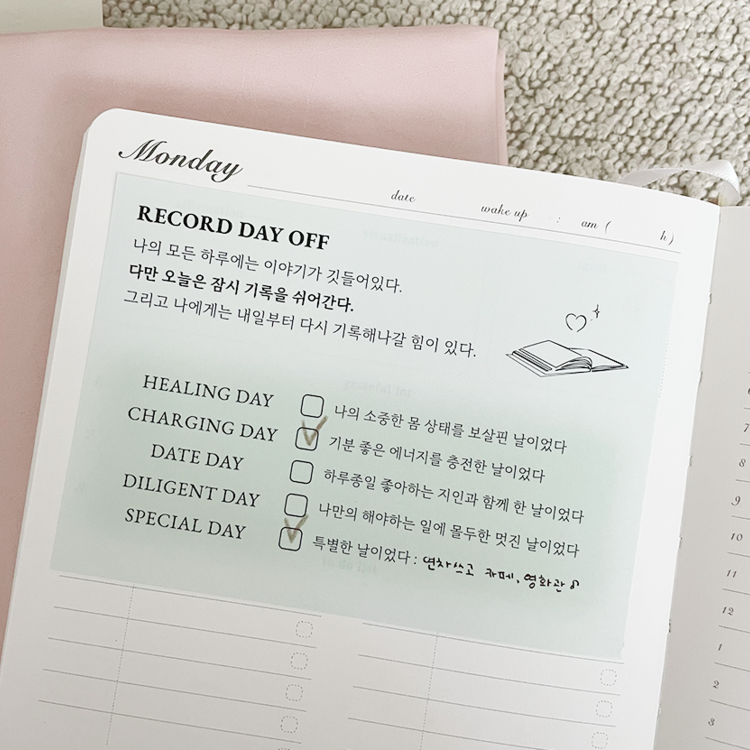 Monday
date wake up : am ( h)
RECORD DAY OFF
나의 모든 하루에는 이야기가 깃들어있다.
다만 오늘은 잠시 기록을 쉬어간다.
그리고 나에게는 내일부터 다시 기록해나갈 힘이 있다.
HEALING DAY 나의 소중한 몸 상태를 보살핀 날이었다
CHARGING DAY 기분 좋은 에너지를 충전한 날이었다
DATE DAY 하루종일 좋아하는 지인과 함께 한 날이었다
DILIGENT DAY 나만의 해야하는 일에 몰두한 멋진 날이었다
SPECIAL DAY 특별한 날이었다 : 연차쓰고 카페, 영화관 ♪
6
7
8
9
10
11
12
1
2
3